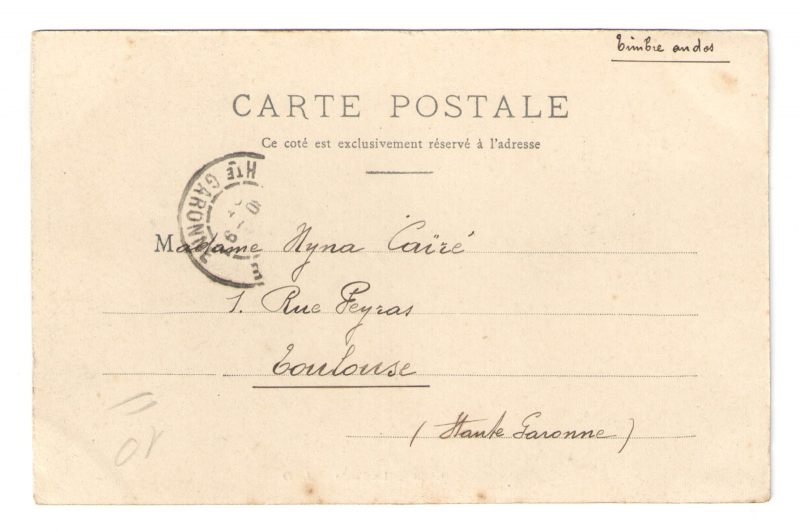 Timbre au dos
CARTE POSTALE
Ce coté est exclusivement réservé à l'adresse
Hte GARONNE
Madame Nyna Caïré
1. Rue Peyras
Toulouse
(Haute Garonne)